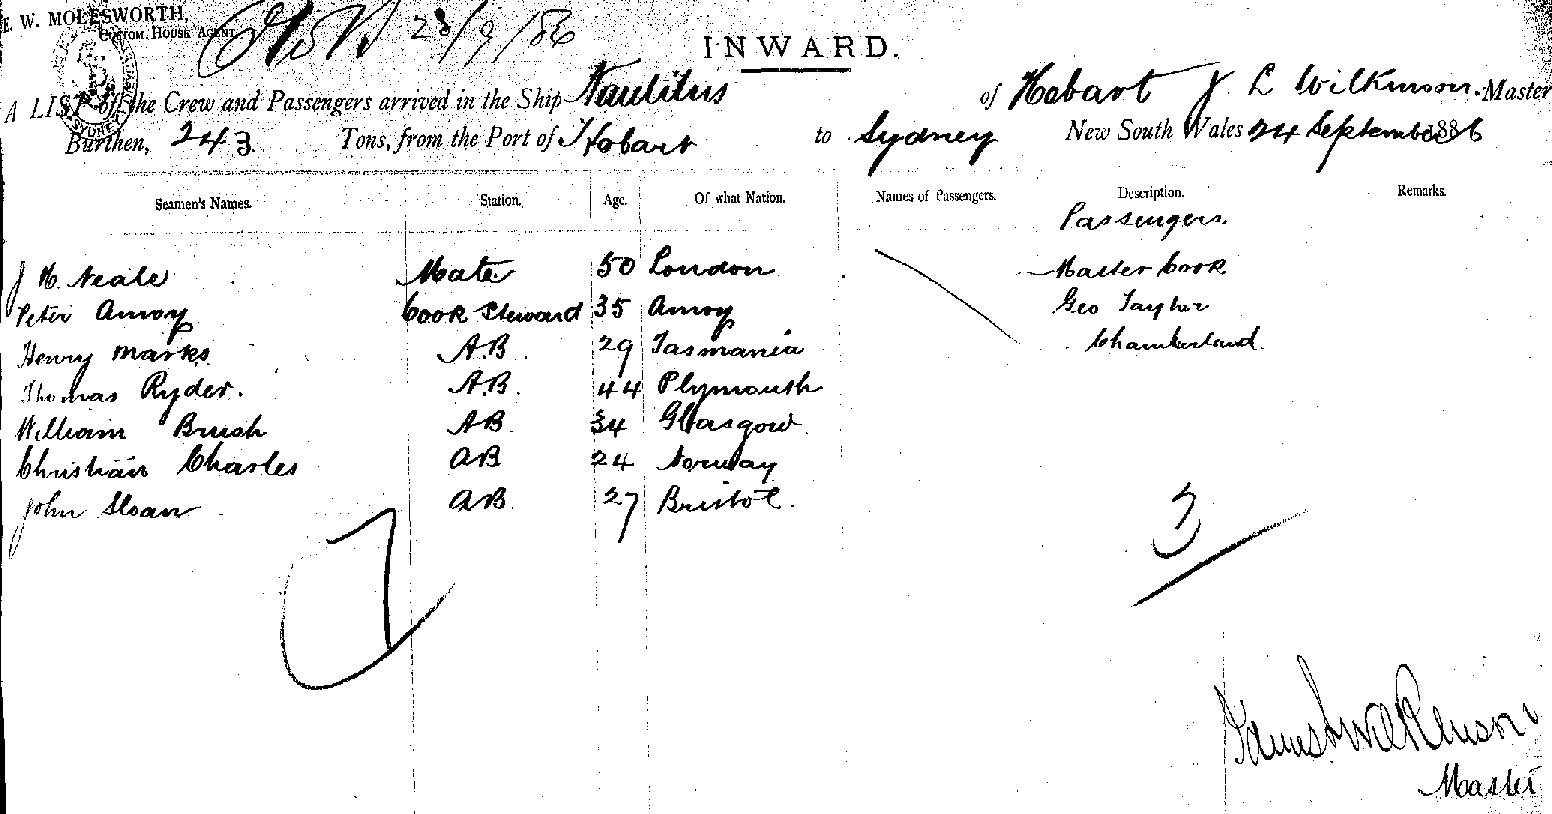 E. W. MOLESWORTH,
CUSTOM HOUSE AGENT,
SYDNEY
28/9/86
INWARD.
A LIST of the Crew and Passengers arrived in the Ship Nautilus of Hobart J L Wilkinson. Master
Burthen, 243 Tons, from the Port of Hobart to Sydney New South Wales 24 September 1886
Seamen's Names. Station. Age. Of what Nation. Names of Passengers. Description. Remarks.
Passengers.
J H Neale Mate 50 London Master Cook
Peter Amoy Cook Steward 35 Amoy Geo Taylor
Henry Marks A.B 29 Tasmania Chamberland.
Thomas Ryder. A.B. 44 Plymouth
William Brush AB 34 Glasgow
Christian Charles AB 24 Norway
John Sloan AB 27 Bristol.
7
3
James L Wilkinson
Master